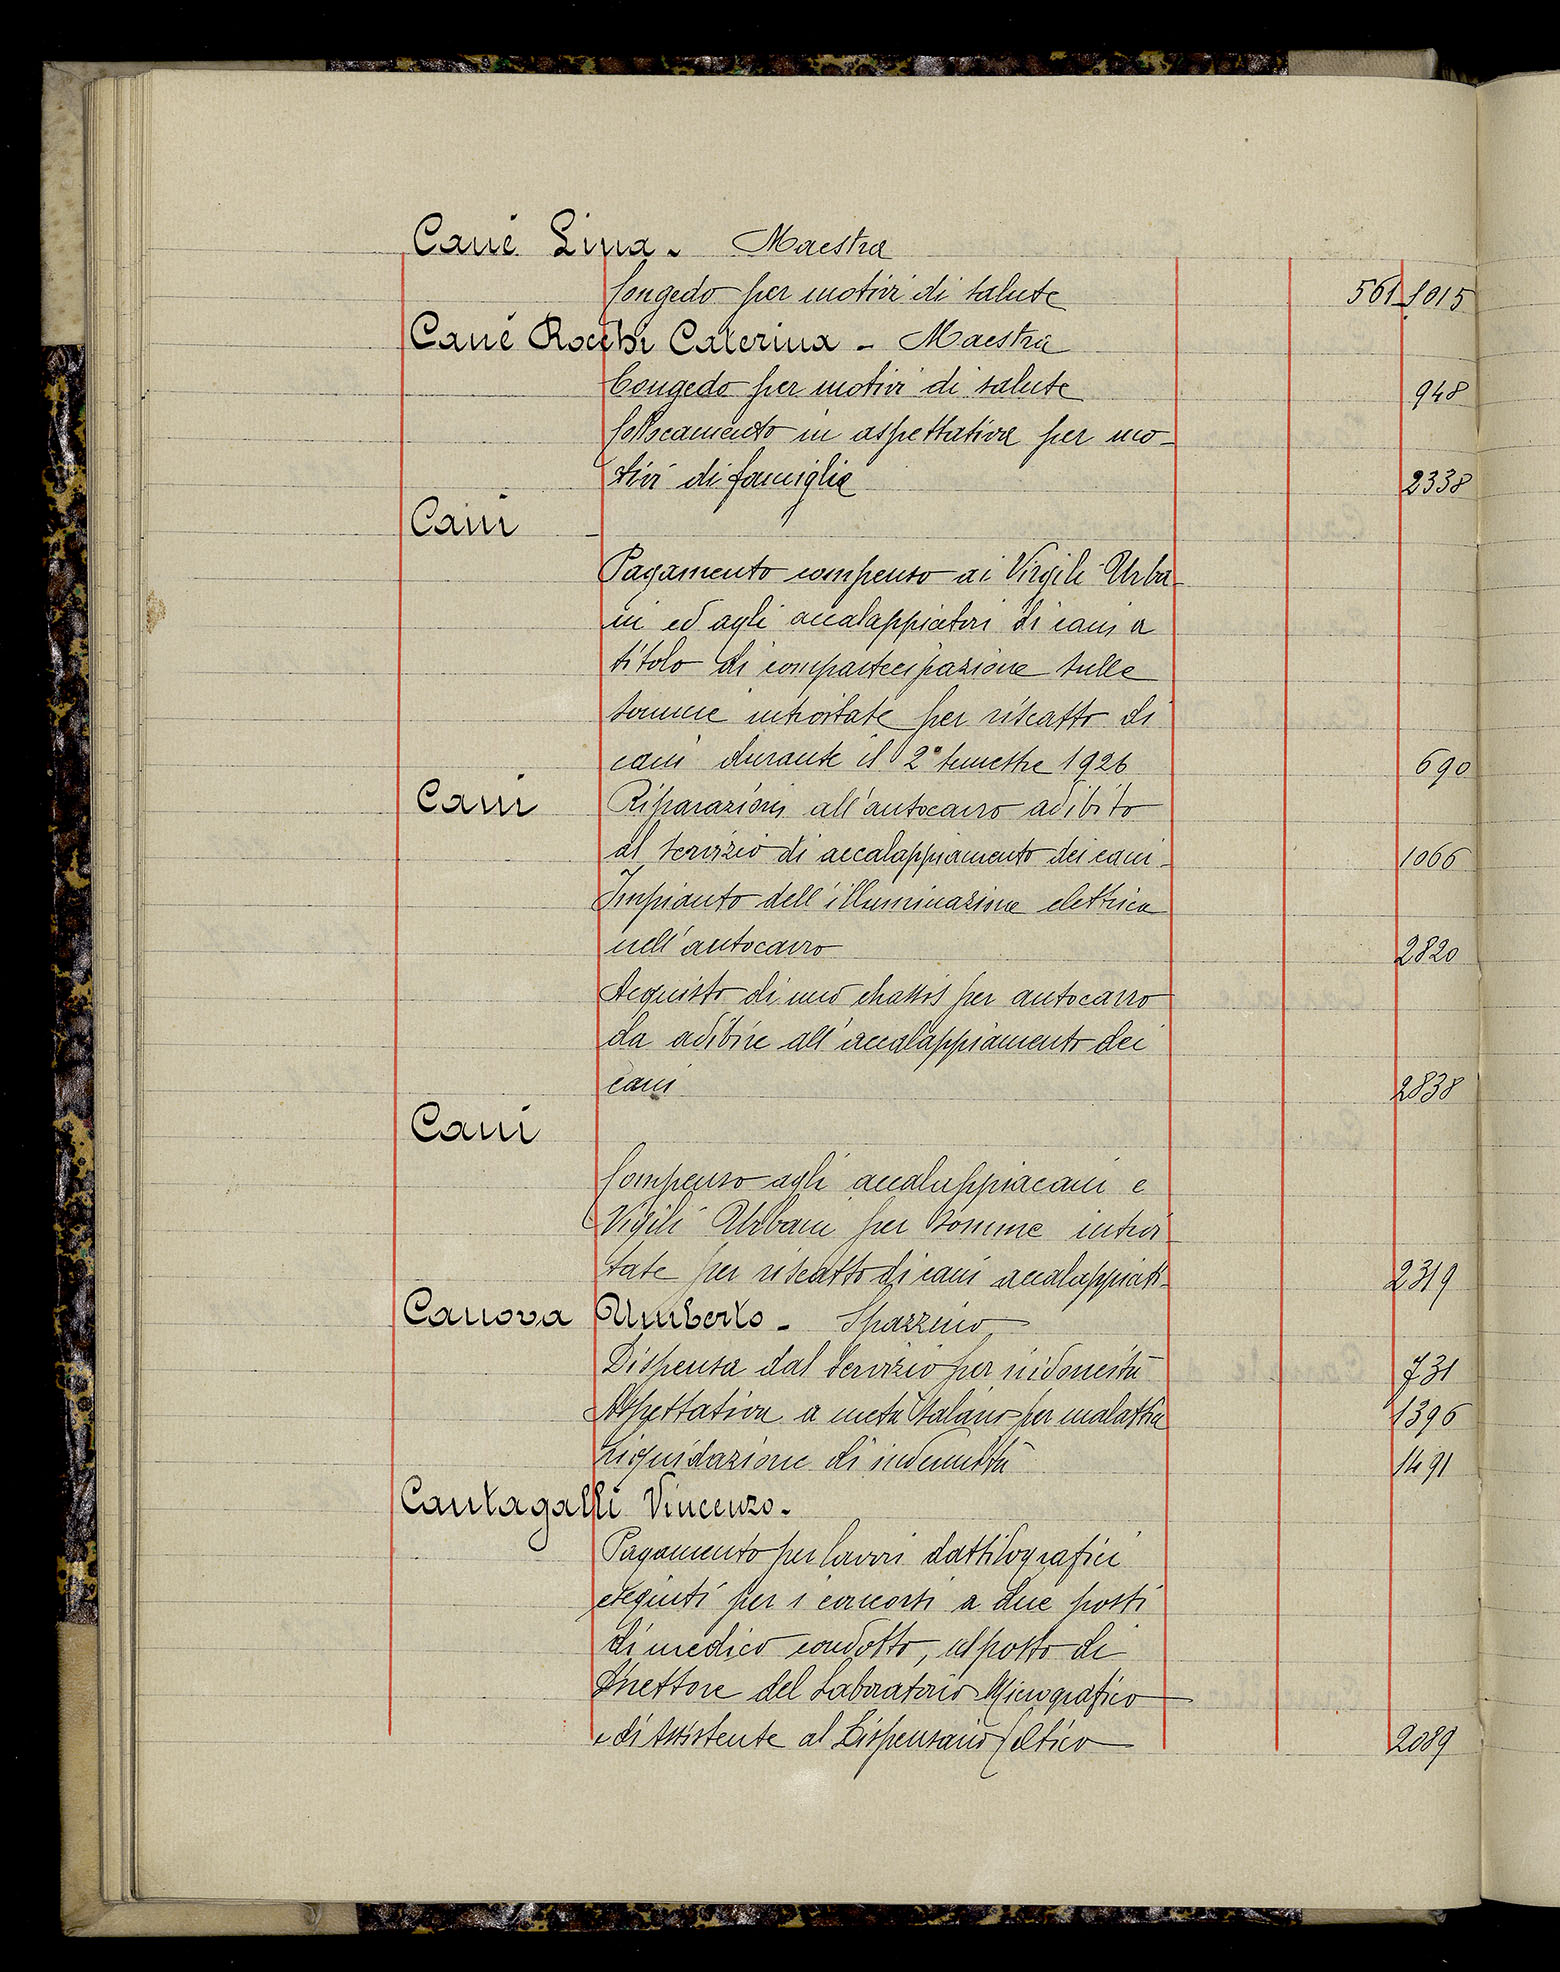 Cané Lina. Maestra
Congedo per motivi di salute 561-1015
Cané Rocchi Caterina - Maestra
Congedo per motivi di salute 948
Collocamento in aspettativa per mo-
tivi di famiglia 2338
Cani -
Pagamento compenso ai Vigili Urba-
ni ed agli accalappiatori di cani a
titolo di compartecipazione sulle
somme introitate per riscatto di
cani durante il 2° semestre 1926 690
Cani Riparazioni all'autocarro adibito
al servizio di accalappiamento dei cani- 1066
Impianto dell'illuminazione elettrica
nell'autocarro 2820
Acquisto di uno chassis per autocarro
da adibire all'accalappiamento dei
cani 2838
Cani
Compenso agli accalappiacani e
Vigili Urbani per somme introi-
tate per riscatto di cani accalappiati- 2319
Canova Umberto - Spazzino
Dispensa dal servizio per inidoneità 731
Aspettativa a metà salario per malattia 1396
Liquidazione di indennità 1491
Cantagalli Vincenzo.
Pagamento per lavori dattilografici
eseguiti per i concorsi a due posti
di medico condotto, al posto di
Direttore del Laboratorio Micrografico
e di Assistente al Dispensario Celtico 2089